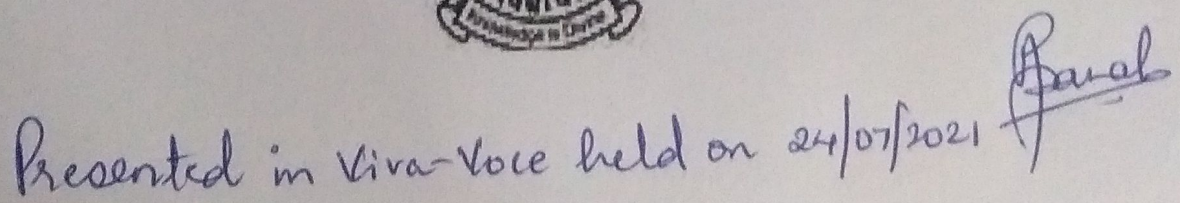 Knowledge is Divine
Presented in Viva-Voce held on 24/07/2021